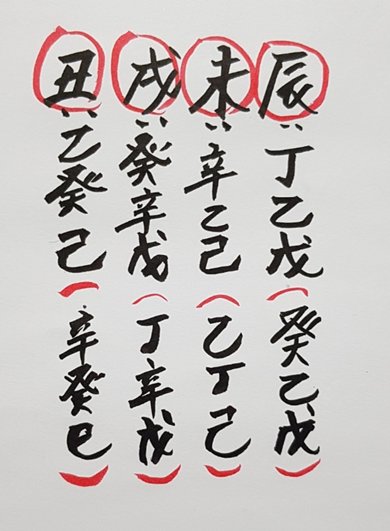 辰:丁乙戊(癸乙戊)
未:辛乙己(乙丁己)
戌:癸辛戊(丁辛戊)
丑:乙癸己(辛癸己)